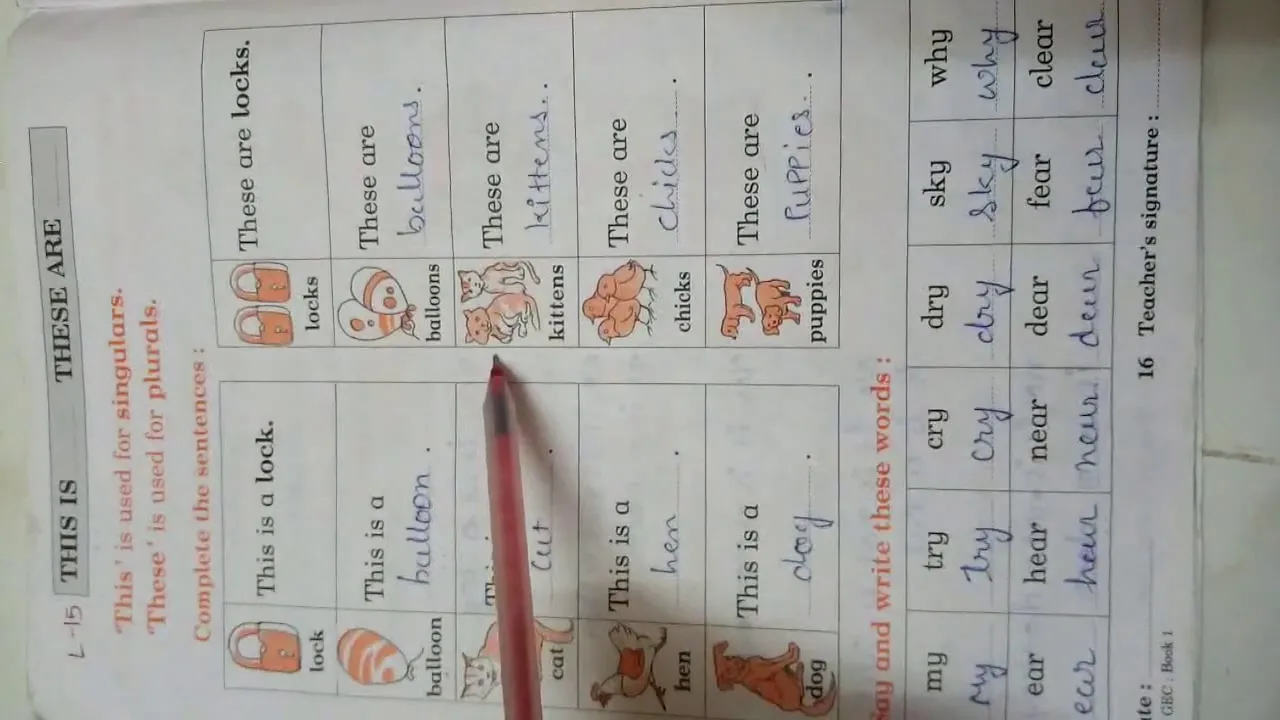 L-15
THIS IS THESE ARE
'This' is used for singulars.
'These' is used for plurals.
Complete the sentences :
lock
This is a lock.
locks
These are locks.
balloon
This is a
balloon.
balloons
These are
balloons.
cat
cat.
kittens
These are
kittens..
hen
This is a
hen.
chicks
These are
chicks.
dog
This is a
dog.
puppies
These are
PUPPies.
Say and write these words :
my try cry dry sky why
my try cry dry sky why
ear hear near dear fear clear
ear hear near dear fear clear
16 Teacher's signature :
GEC . Book 1